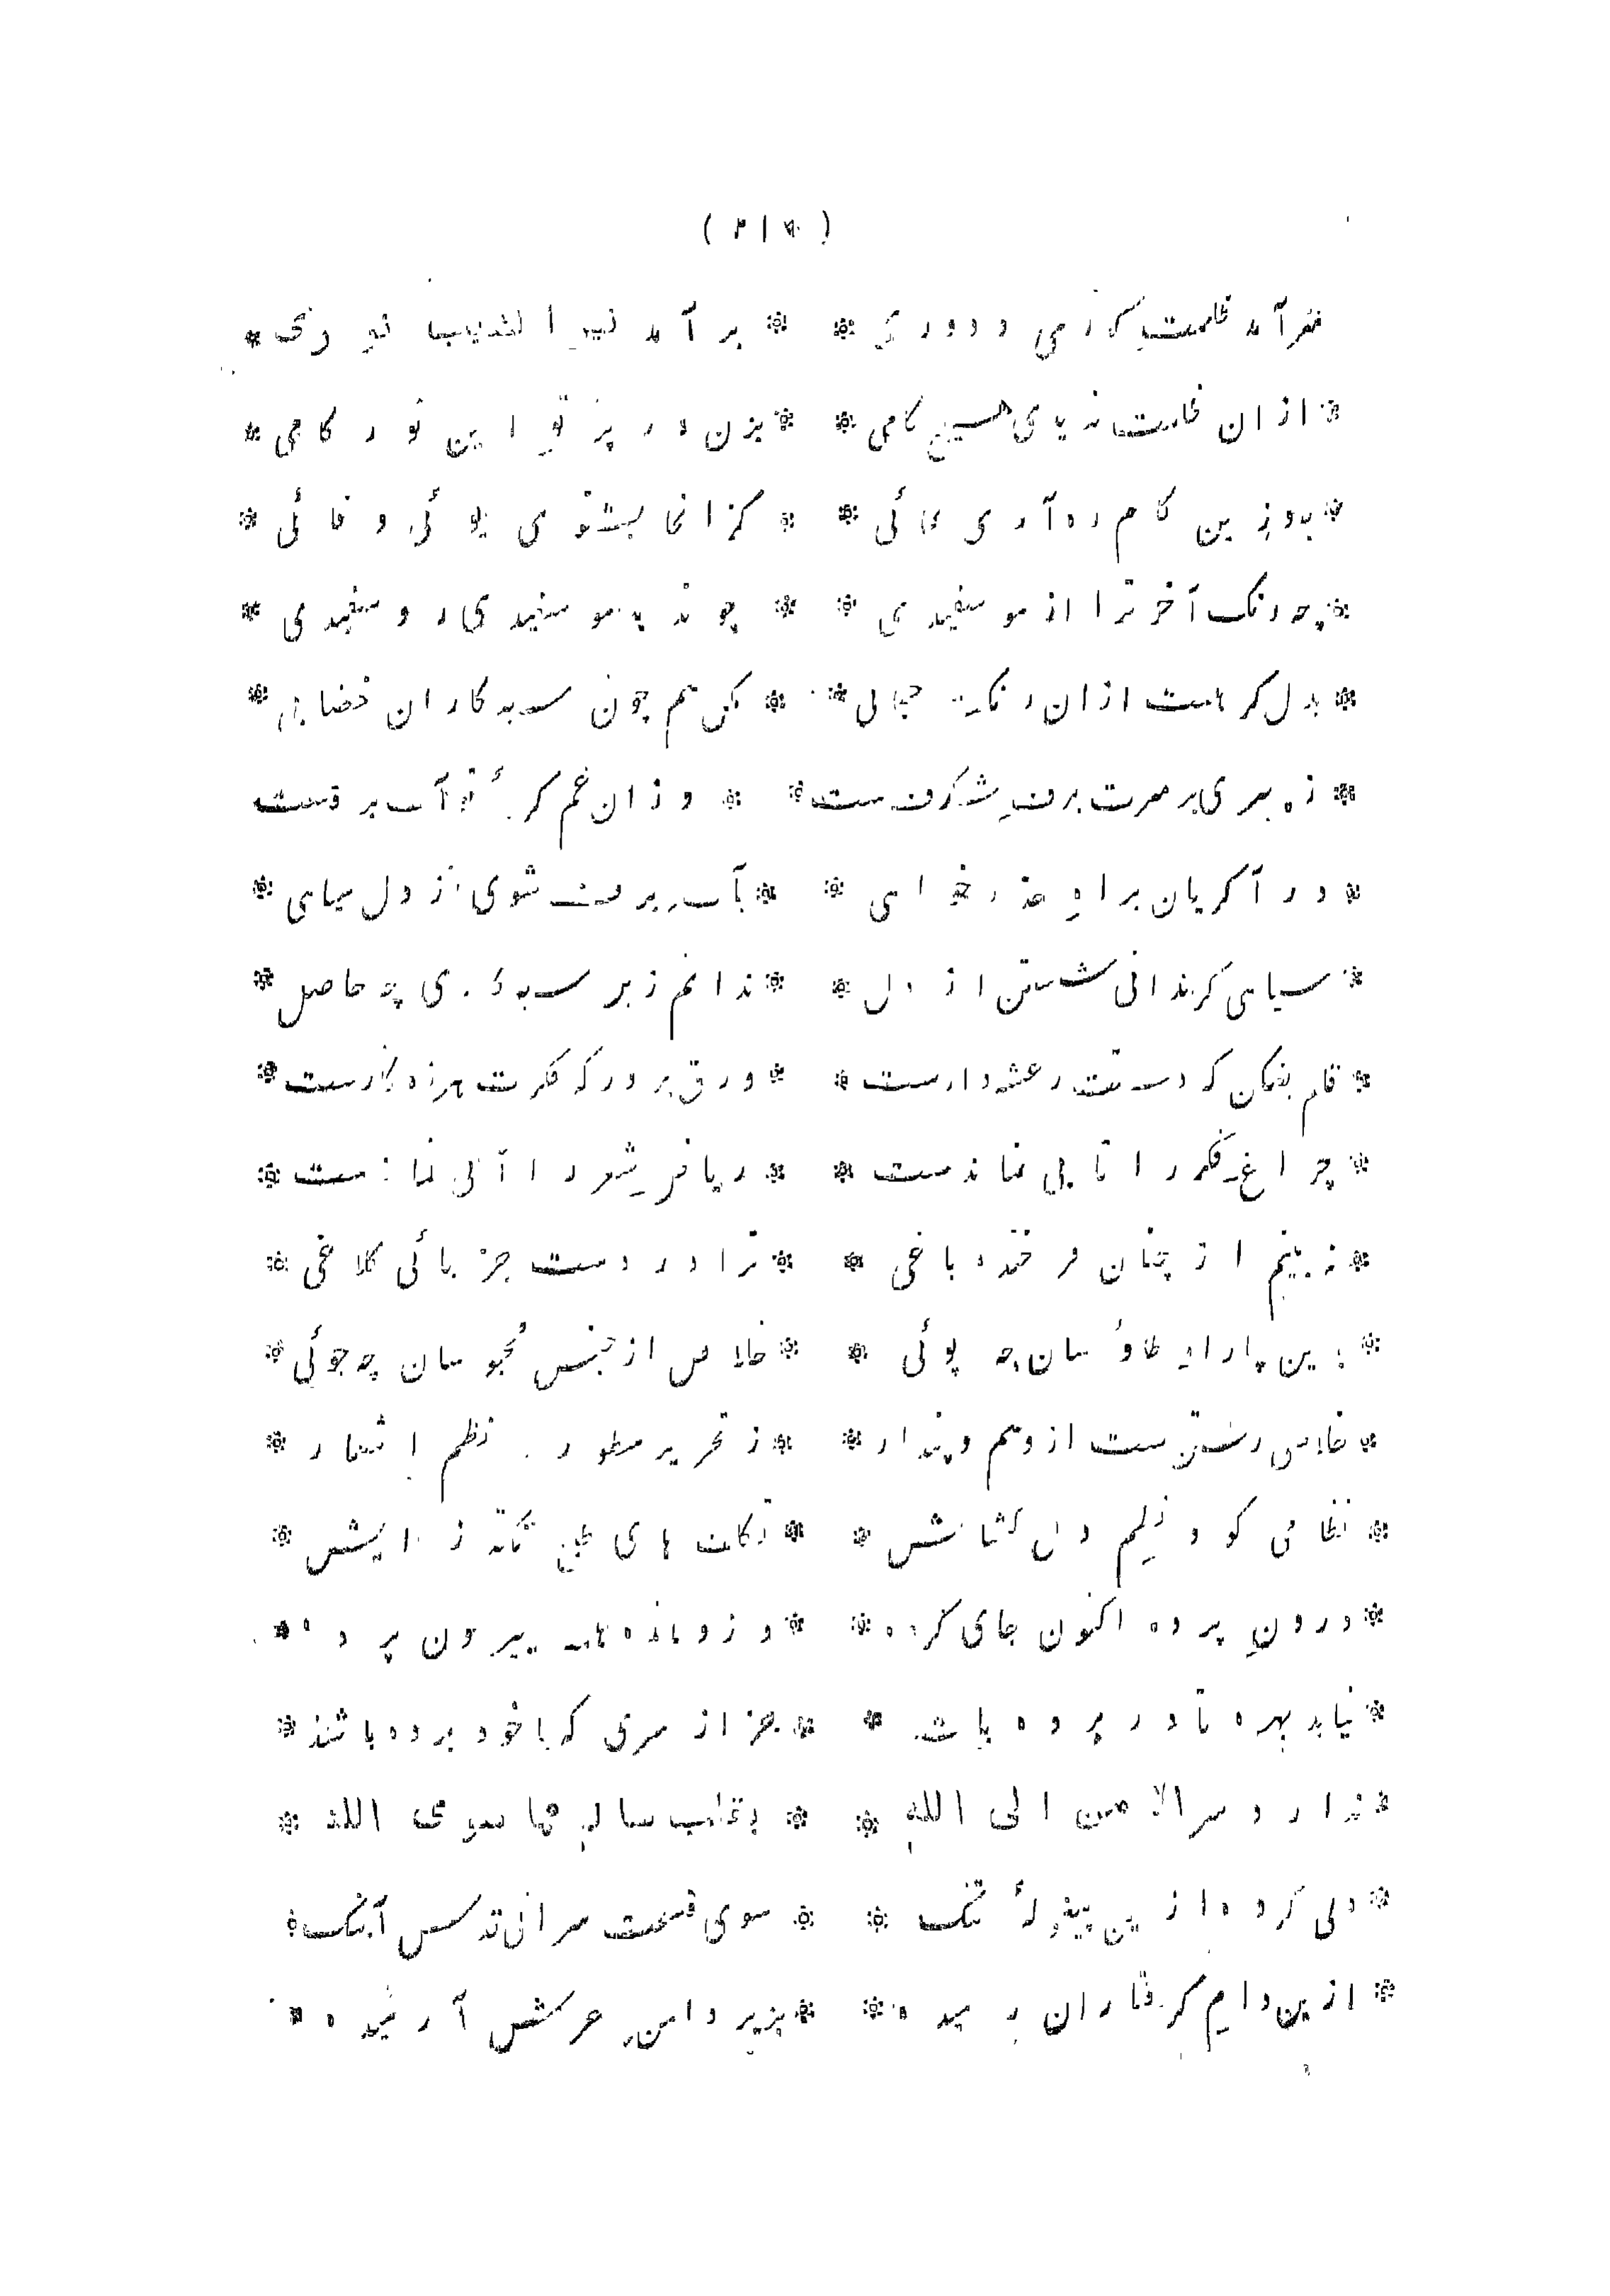 * از ان ظلمت ندیدی هیچ کامی * * بزن در پرتو این نور کامی *
* بدو زین کام ره آری بجائی * * کز انجا بشنوی بوئی وفائی *
* چه رنک آخر ترا از مو سفیدی * * چو ند به مو سفیدی رو سفیدی *
* بدل کر هست ازان رنکت حجابی * * بکن هم چون سیه کاران خضابی *
* ز پیری بر سرت برف شکرف ست * * وزان غم کریه تو آب برفست
* در آ کریان براه عذر خواهی * * بآب برف شوی از دل سیاهی *
* سیاهی کر ندانی شستن از دل * * ندانم زیر سیه کاری چه حاصل *
* قلم بفکن که دستت رعشه دارست * * ورق بر در که فکرت هرزه کارست *
* چراغ فکر را تابی نماندست * * ریاض شعر را آبی نماندست *
* نه بینم از چنان فرخنده باغی * * ترا در دست جز پائی کلاغی *
* بدین پا راه طاوسان چه پوئی * * خلاص از حبس محبوسان چه جوئی *
* خلاصی رستن ست از وهم و پندار * * ز تحریر سطور نظم اشعار *
* نظامی کو و نظم دل کشایش * * تکلف های طبع نکته زایش *
* درون پرده اکنون جای کرده * * وزو مانده همه بیرون پرده *
* نیابد بهره تا در پرده باشد * * جز از سری که با خود برده باشد *
* ندارد سر الا من الی الله * * بقلب سالم مما سوی الله *
* دلی کرده ازین پیغوله تنک * * سوی فسحت سرای قدس آهنک *
* ازین دام کرفتاران رمیده * * بزیر دامن عرشش آرمیده *